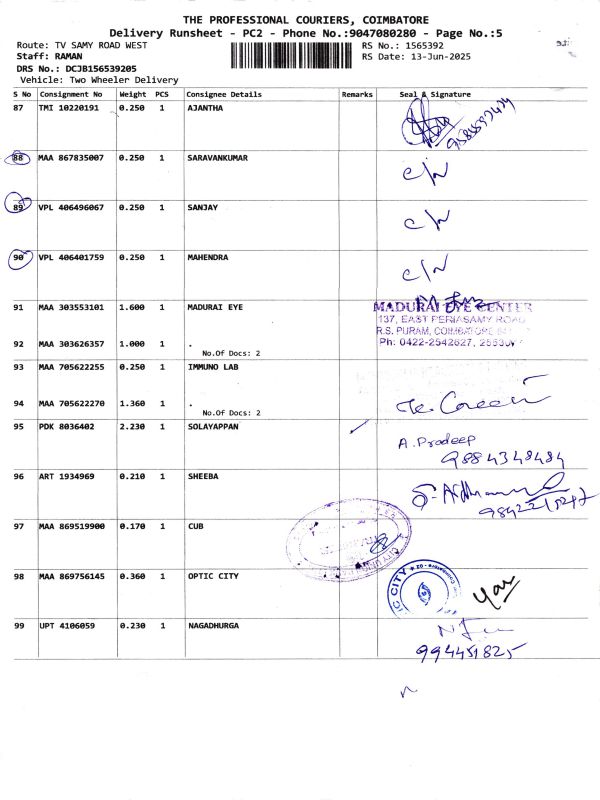 THE PROFESSIONAL COURIERS, COIMBATORE
Delivery Runsheet - PC2 - Phone No.:9047080280 - Page No.:5
Route: TV SAMY ROAD WEST
RS No.: 1565392
Staff: RAMAN
RS Date: 13-Jun-2025
DRS No.: DCJB156539205
Vehicle: Two Wheeler Delivery
S No Consignment No Weight PCS Consignee Details Remarks Seal & Signature
87 TMI 10220191 0.250 1 AJANTHA
88 MAA 867835007 0.250 1 SARAVANKUMAR C/W
89 VPL 406496067 0.250 1 SANJAY C/W
90 VPL 406401759 0.250 1 MAHENDRA C/W
91 MAA 303553101 1.600 1 MADURAI EYE
MADURAI EYE CENTER
137, EAST PERIASAMY ROAD
R.S. PURAM, COIMBATORE
Ph: 0422-2542627,
92 MAA 303626357 1.000 1 .
No.Of Docs: 2
93 MAA 705622255 0.250 1 IMMUNO LAB
94 MAA 705622270 1.360 1 .
No.Of Docs: 2
95 PDK 8036402 2.230 1 SOLAYAPPAN
A. Pradeep
9884348484
96 ART 1934969 0.210 1 SHEEBA
97 MAA 869519900 0.170 1 CUB
98 MAA 869756145 0.360 1 OPTIC CITY
99 UPT 4106059 0.230 1 NAGADHURGA
994451825